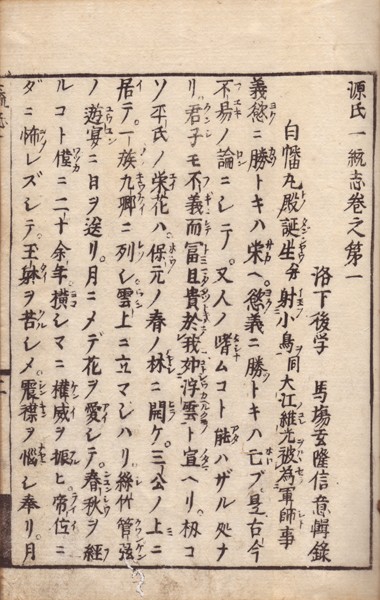 源氏一統志巻之第一
洛下後学　馬場玄隆信意輯録
白幡丸殿誕生并射小鳥同大江維光被為軍師事
義慾ニ勝トキハ栄ヘ慾義ニ勝トキハ亡ブ是古今
不易ノ論ニシテ又人ノ嗜ムコト能ハザル処ナ
リ君子モ不義而富且貴於我如浮雲ト宣ヘリ扨コ
ソ平氏ノ栄花ハ保元ノ春ノ林ニ開ケ三公ノ上ニ
居テ一族九卿ニ列シ雲上ニ立マジハリ絲竹管弦
ノ遊宴ニ日ヲ送リ月ニメデ花ヲ愛シテ春秋ヲ経
ルコト僅ニ二十余年横シマニ権威ヲ振ヒ帝位ニ
ダニ怖レズシテ玉躰ヲ苦シメ震襟ヲ悩シ奉リ月